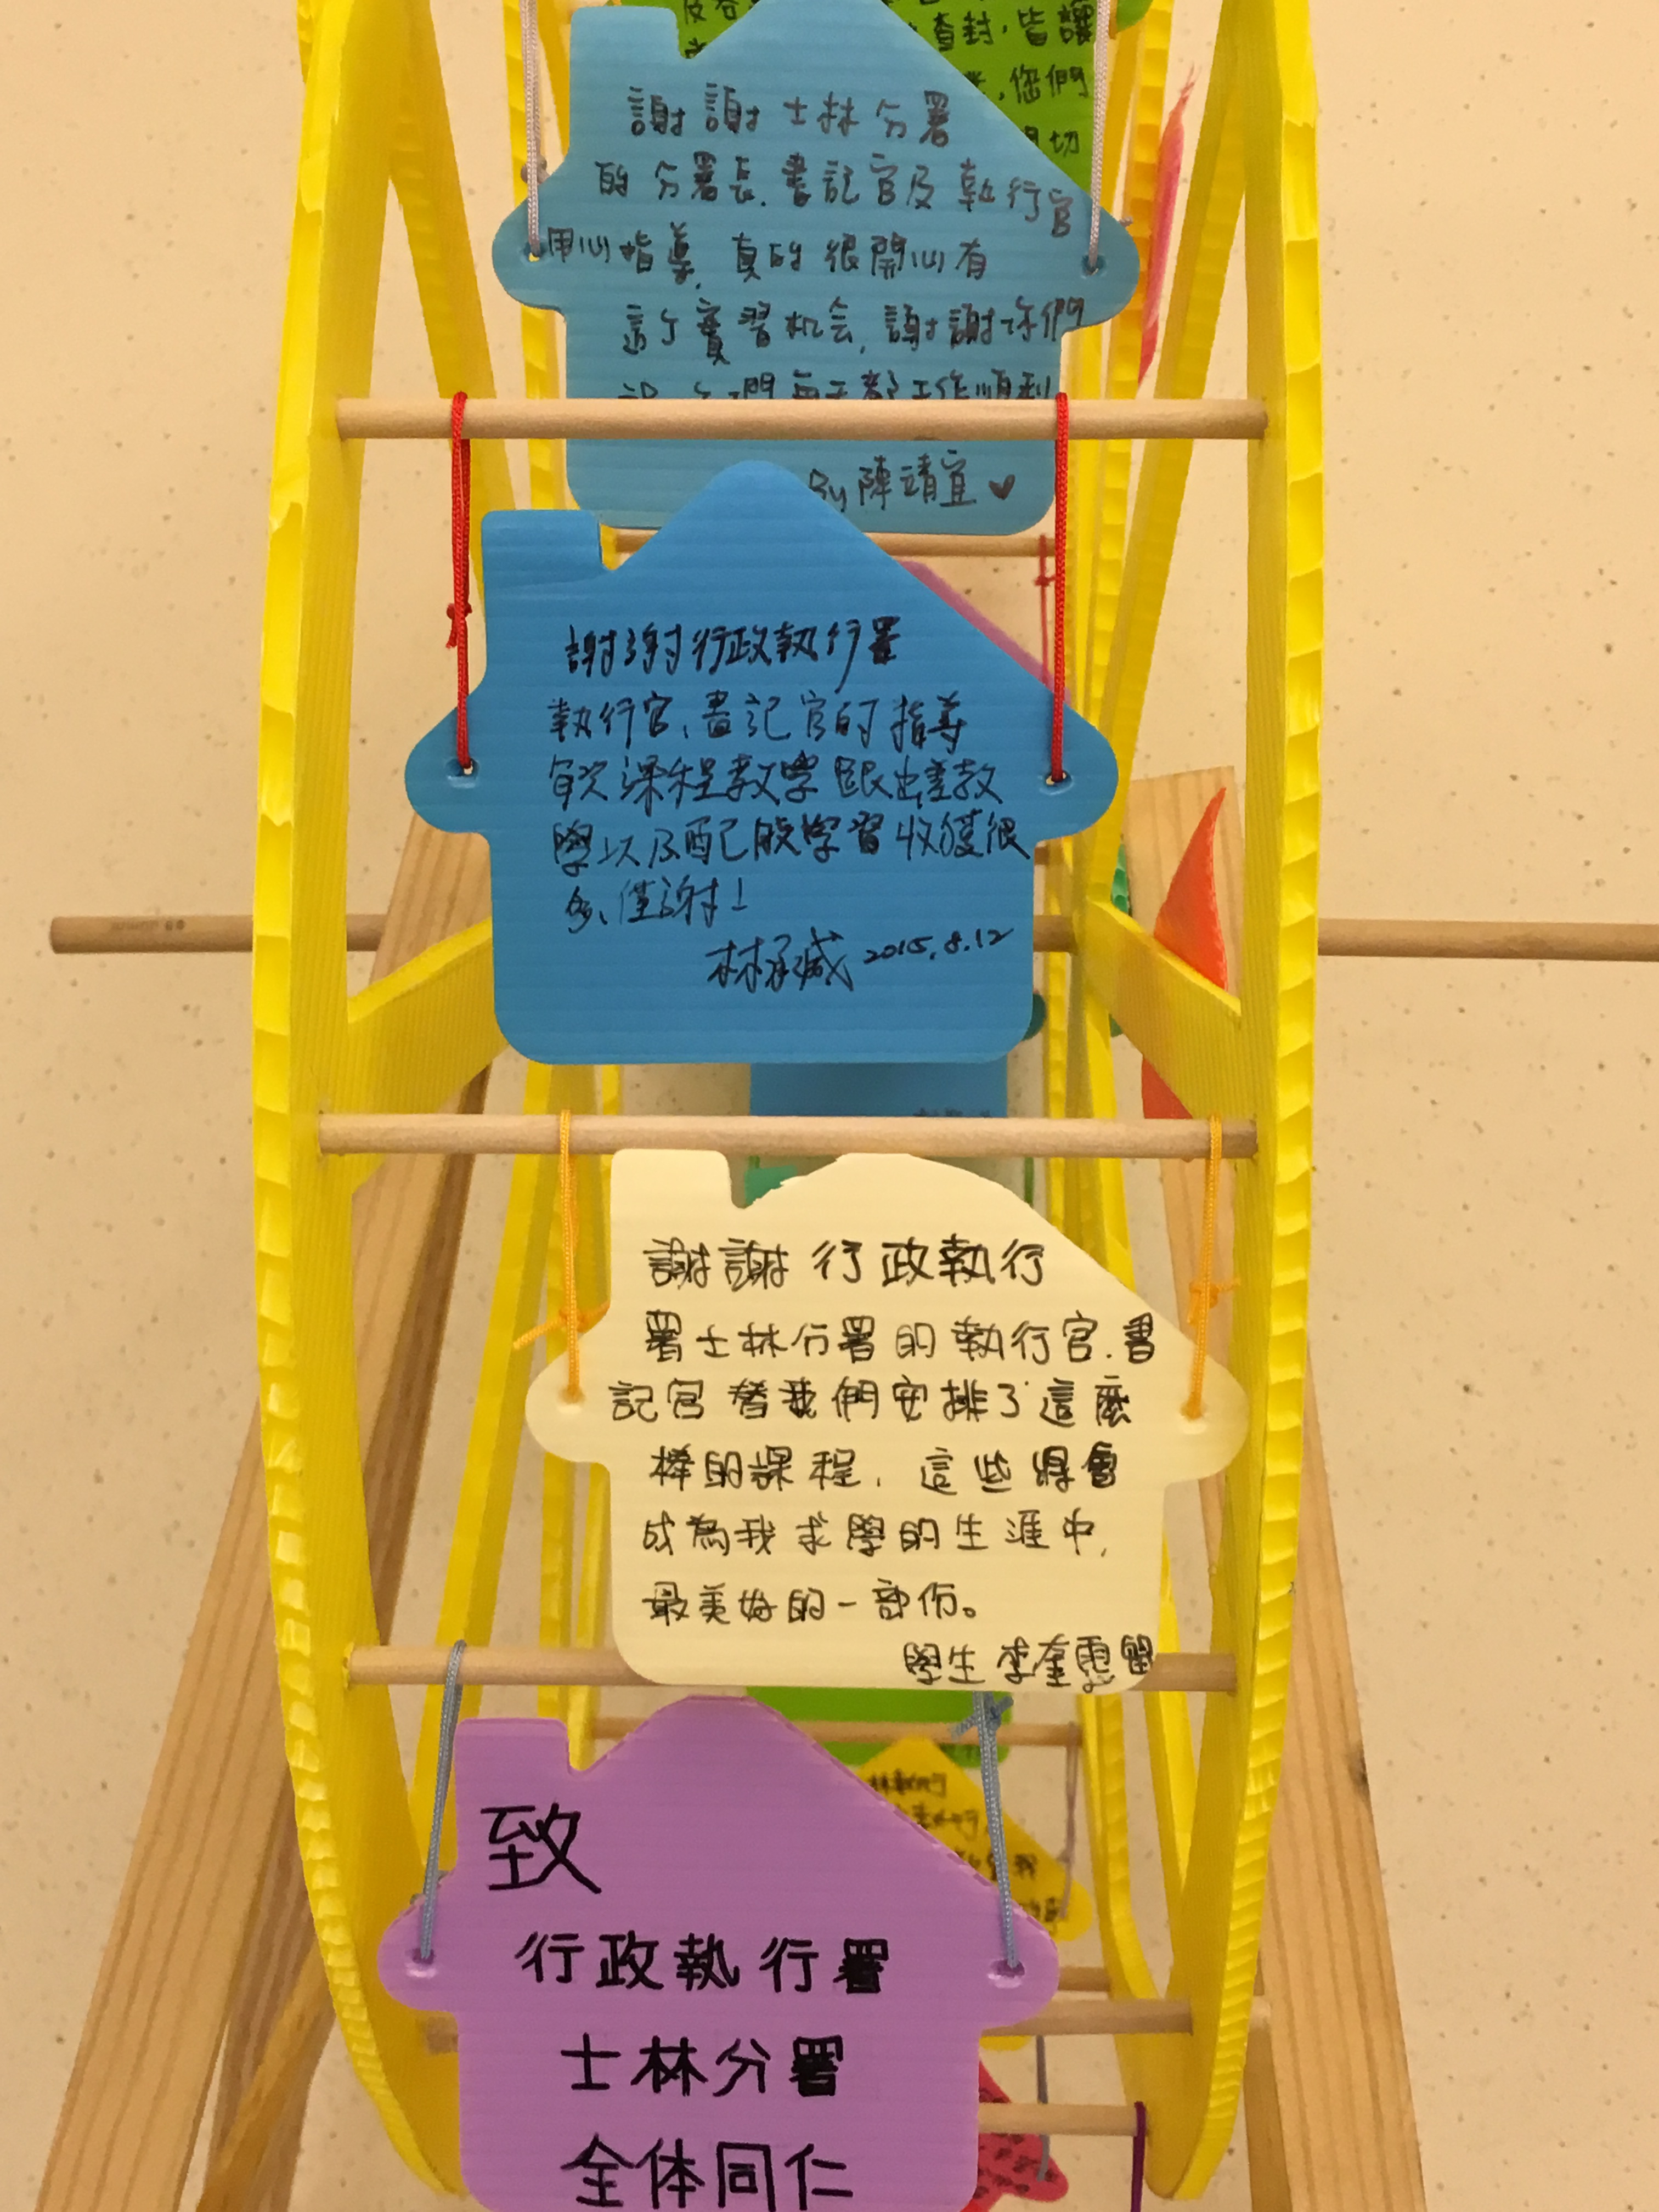 查封,皆讓
,您們
切
謝謝士林分署
的分署長.書記官及執行官
用心指導,真的很開心有
這个實習机会,謝謝你們
每天都工作順利
By 陳靖宜♥
謝謝行政執行署
執行官、書記官的指導
每次課程教學跟出差教
學以及配股學習收獲很
多、僅謝!
林承威 2015.8.12
謝謝行政執行
署士林分署的執行官.書
記官替我們安排了這麼
棒的課程,這些將會
成為我求學的生涯中,
最美好的一部份。
學生 李奎 留
致
行政執行署
士林分署
全体同仁